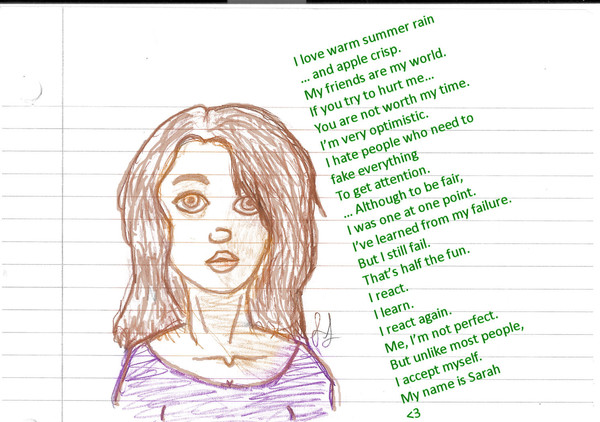 I love warm summer rain
... and apple crisp.
My friends are my world.
If you try to hurt me...
You are not worth my time.
I'm very optimistic.
I hate people who need to
fake everything
To get attention.
... Although to be fair,
I was one at one point.
I've learned from my failure.
But I still fail.
That's half the fun.
I react.
I learn.
I react again.
Me, I'm not perfect.
But unlike most people,
I accept myself.
My name is Sarah
<3